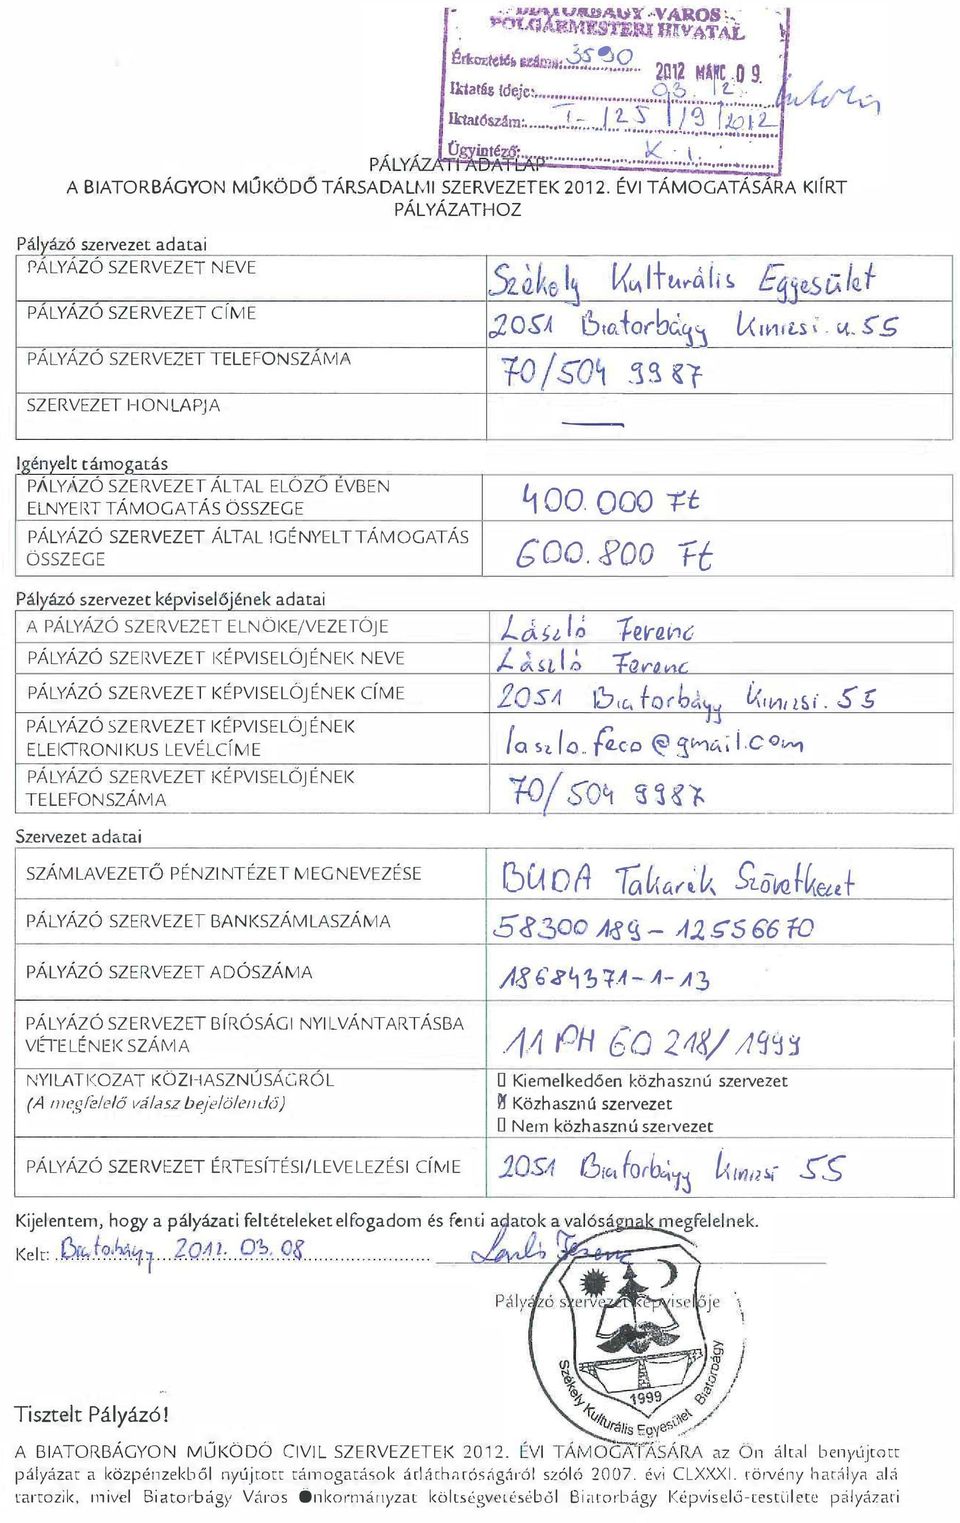 BIATORBÁGY VÁROS
POLGÁRMESTERI HIVATAL
Érkeztetés száma: 3590
2012 MÁRC. 0 9.
Iktatás ideje: 03. 12.
Iktatószám: I- 125 /19/2012
Ügyintéző: K. I.
PÁLYÁZATI ADATLAP
A BIATORBÁGYON MŰKÖDŐ TÁRSADALMI SZERVEZETEK 2012. ÉVI TÁMOGATÁSÁRA KIÍRT
PÁLYÁZATHOZ
Pályázó szervezet adatai
PÁLYÁZÓ SZERVEZET NEVE Székely Kulturális Egyesület
PÁLYÁZÓ SZERVEZET CÍME 2051 Biatorbágy Kinizsi. u. 55
PÁLYÁZÓ SZERVEZET TELEFONSZÁMA 70/504 9987
SZERVEZET HONLAPJA —
Igényelt támogatás
PÁLYÁZÓ SZERVEZET ÁLTAL ELŐZŐ ÉVBEN
ELNYERT TÁMOGATÁS ÖSSZEGE 400.000 Ft
PÁLYÁZÓ SZERVEZET ÁLTAL IGÉNYELT TÁMOGATÁS
ÖSSZEGE 600.800 Ft
Pályázó szervezet képviselőjének adatai
A PÁLYÁZÓ SZERVEZET ELNÖKE/VEZETŐJE László Ferenc
PÁLYÁZÓ SZERVEZET KÉPVISELŐJÉNEK NEVE László Ferenc
PÁLYÁZÓ SZERVEZET KÉPVISELŐJÉNEK CÍME 2051 Biatorbágy Kinizsi. 55
PÁLYÁZÓ SZERVEZET KÉPVISELŐJÉNEK
ELEKTRONIKUS LEVÉLCÍME laszlo.feco@gmail.com
PÁLYÁZÓ SZERVEZET KÉPVISELŐJÉNEK
TELEFONSZÁMA 70/504 9987
Szervezet adatai
SZÁMLAVEZETŐ PÉNZINTÉZET MEGNEVEZÉSE BUDA Takarék Szövetkezet
PÁLYÁZÓ SZERVEZET BANKSZÁMLASZÁMA 58300189-12556670
PÁLYÁZÓ SZERVEZET ADÓSZÁMA 18684371-1-13
PÁLYÁZÓ SZERVEZET BÍRÓSÁGI NYILVÁNTARTÁSBA
VÉTELÉNEK SZÁMA 11 PH 60 218/1999
NYILATKOZAT KÖZHASZNÚSÁGRÓL
(A megfelelő válasz bejelölendő)
▯ Kiemelkedően közhasznú szervezet
☒ Közhasznú szervezet
▯ Nem közhasznú szervezet
PÁLYÁZÓ SZERVEZET ÉRTESÍTÉSI/LEVELEZÉSI CÍME 2051 Biatorbágy Kinizsi 55
Kijelentem, hogy a pályázati feltételeket elfogadom és fenti adatok a valóságnak megfelelnek.
Kelt: Biatorbágy 2012. 03. 08 László Ferenc
Pályázó szervezet képviselője
Székely Kulturális Egyesület Biatorbágy
1999
Tisztelt Pályázó!
A BIATORBÁGYON MŰKÖDŐ CIVIL SZERVEZETEK 2012. ÉVI TÁMOGATÁSÁRA az Ön által benyújtott
pályázat a közpénzekből nyújtott támogatások átláthatóságáról szóló 2007. évi CLXXXI. törvény hatálya alá
tartozik, mivel Biatorbágy Város Önkormányzat költségvetéséből Biatorbágy Képviselő-testülete pályázati